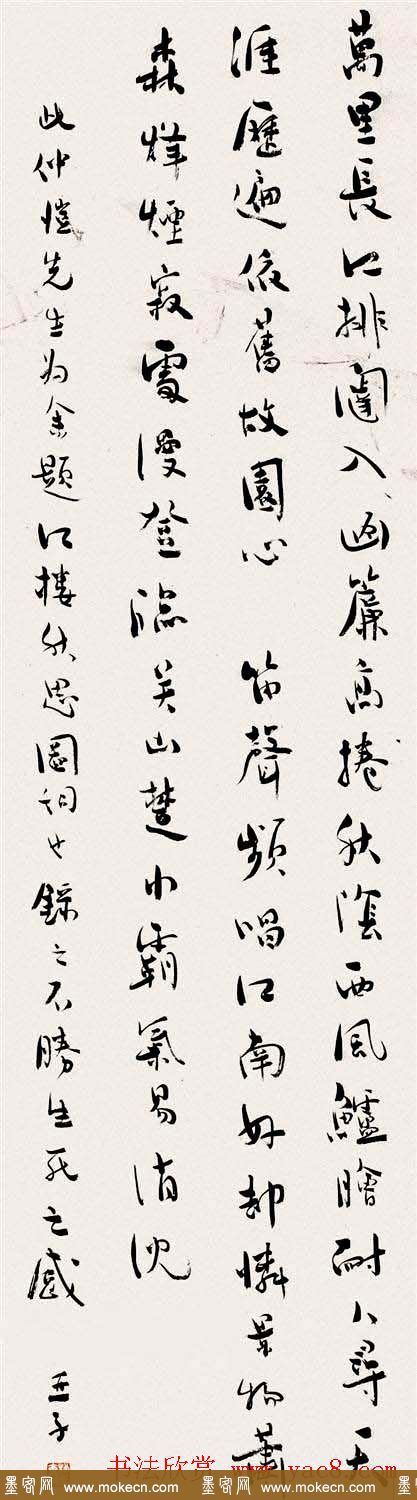 萬里長江排闥入画簾高捲秋陰西風鱸膾耐人尋天
涯歷遍依舊故園心 笛聲頻唱江南好却憐景物蕭
森烽煙寂處漫登臨吳山楚水霸氣易消沈
此仲愷先生為余題江樓秋思圖詞也錄之不勝生死之感 亞子
书法欣赏 www.yac8.com
墨客网 www.mokecn.com 墨客网 www.mokecn.com 墨客网 www.mokecn.com